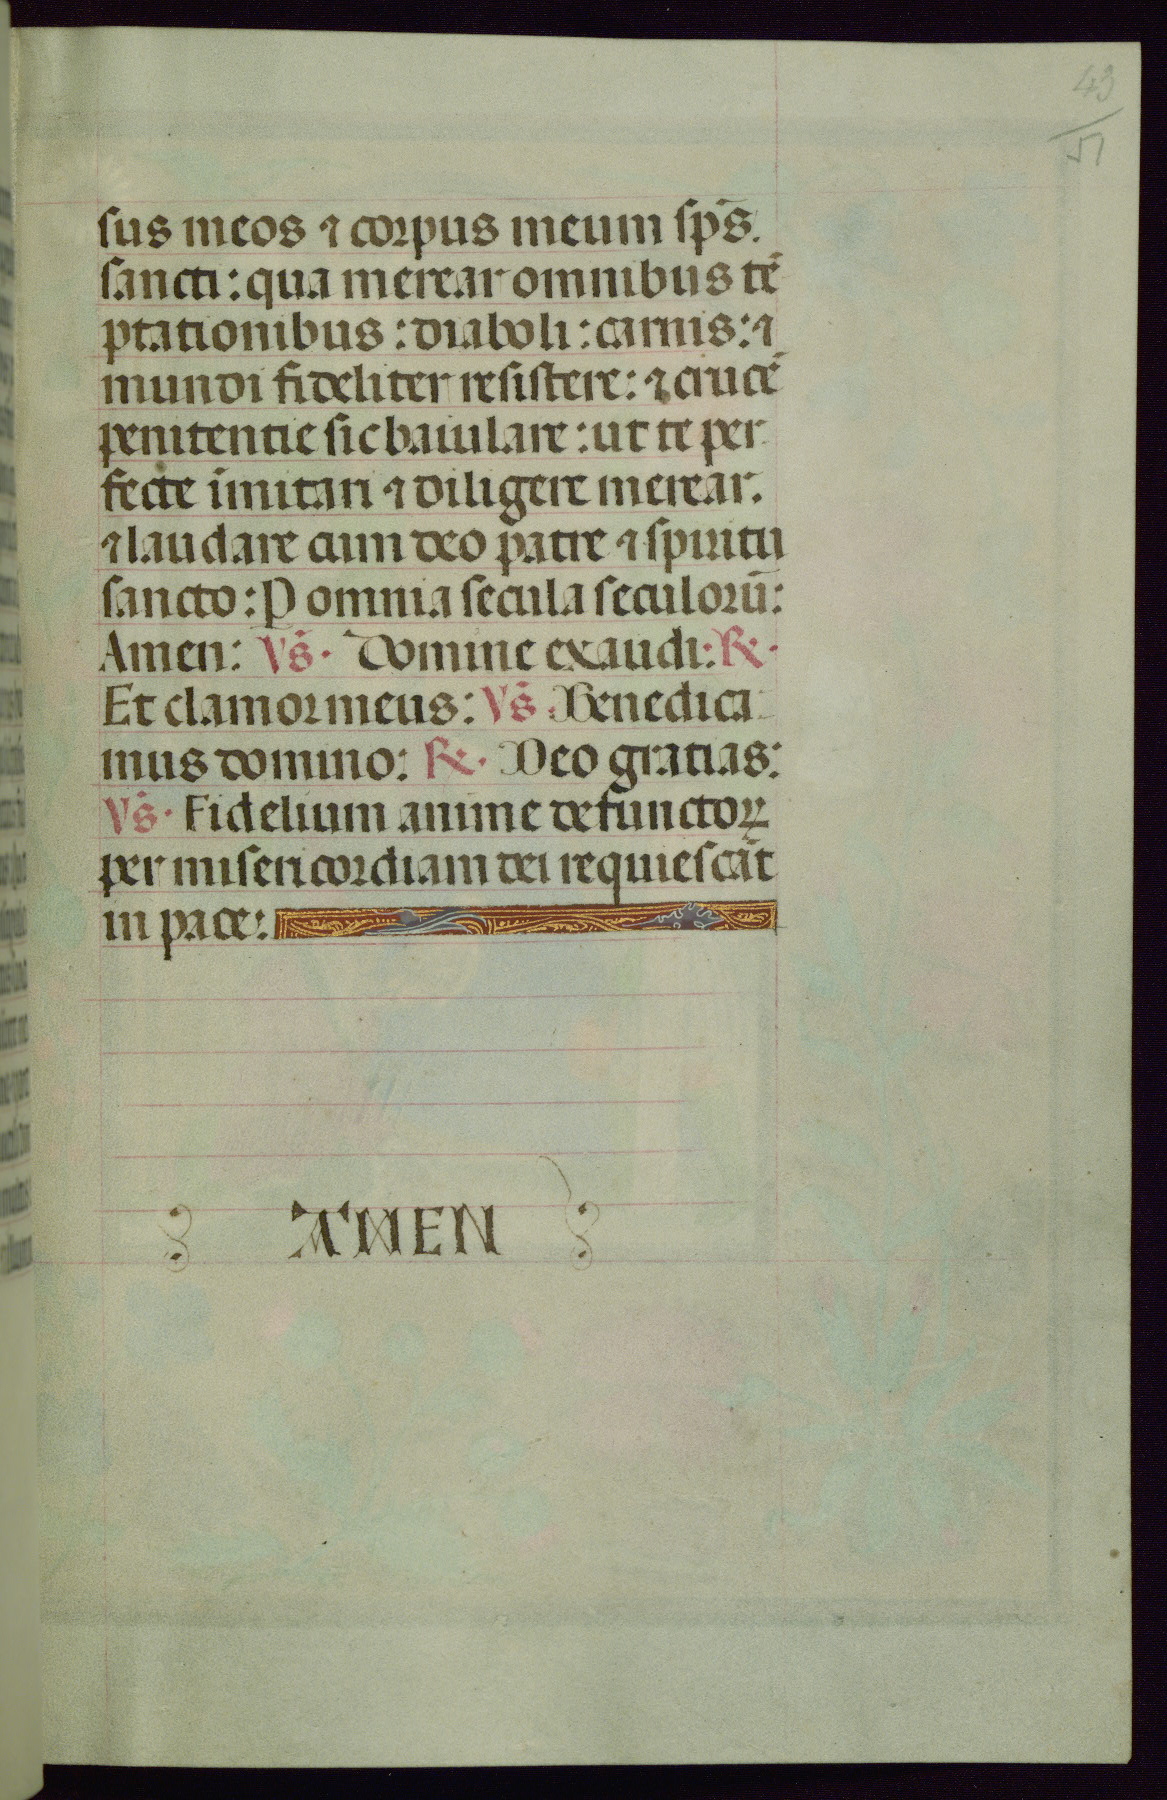 43
51
sus meos ⁊ corpus meum sp̄s.
sancti: qua merear omnibus tē
ptationibus: diaboli: carnis: ⁊
mundi fideliter resistere: ⁊ crucē
penitentie sic baiulare: ut te per
fecte īmitari ⁊ diligere merear.
⁊ laudare cum deo patre ⁊ spiritu
sancto: P omnia secula seculorū:
Amen: Vs̄. Domine exaudi: ℟.
Et clamor meus: Vs̄. Benedica
mus domino: ℟. Deo gratias:
Vs̄. Fidelium anime defunctoꝝ
per misericordiam dei requiescāt
in pace:
AMEN